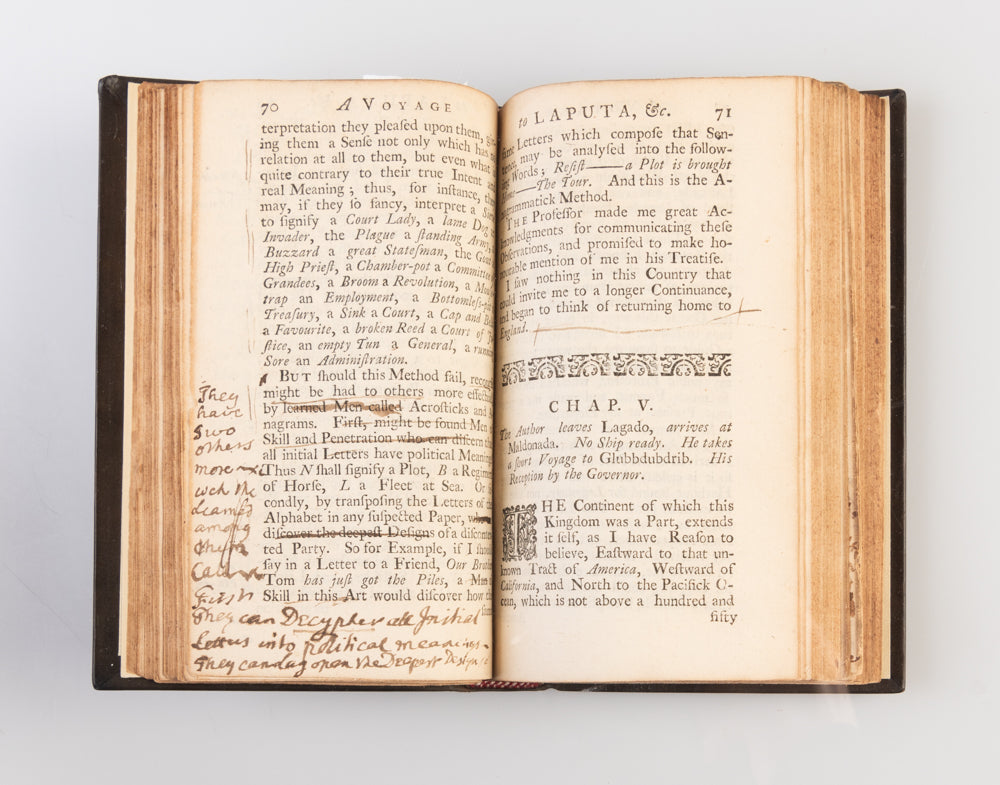 70 A VOYAGE
terpretation they pleaſed upon them,
ing them a Senſe not only which has
relation at all to them, but even what
quite contrary to their true Intent
real Meaning ; thus, for inſtance,
may, if they ſo fancy, interpret a
to ſignify a Court Lady, a lame Dog
Invader, the Plague a ſtanding Army,
Buzzard a great Stateſman, the
High Prieſt, a Chamber-pot a Committee
Grandees, a Broom a Revolution, a
trap an Employment, a
Treaſury, a Sink a Court, a Cap and
a Favourite, a broken Reed a Court of
ſtice, an empty Tun a General, a
Sore an Adminiſtration.
BUT ſhould this Method fail,
might be had to others more
by learned Men called Acroſticks and
nagrams. Firſt, might be found Men
Skill and Penetration who can diſcern
all initial Letters have political
Thus N ſhall ſignify a Plot, B a
of Horſe, L a Fleet at Sea. Or
condly, by tranſpoſing the Letters of
Alphabet in any ſuſpected Paper,
diſcover the deepeſt Deſigns of a
ted Party. So for Example, if I
ſay in a Letter to a Friend, Our
Tom has juſt got the Piles, a Man
Skill in this Art would diſcover how
They
have
two
others
more
wch the
Learned
among
them
Call
First
They can Decypher all Initial
Letters into political meanings.
They can lay open the Deepest
to LAPUTA, &c. 71
Letters which compoſe that Sen-
may be analyſed into the follow-
Words ; Reſiſt——a Plot is brought
——The Tour. And this is the A-
nagrammatick Method.
THE Profeſſor made me great Ac-
knowledgments for communicating theſe
Obſervations, and promiſed to make ho-
nourable mention of me in his Treatiſe.
I ſaw nothing in this Country that
could invite me to a longer Continuance,
and began to think of returning home to
England.
CHAP. V.
The Author leaves Lagado, arrives at
Maldonada. No Ship ready. He takes
a ſhort Voyage to Glubbdubdrib. His
Reception by the Governor.
THE Continent of which this
Kingdom was a Part, extends
it ſelf, as I have Reaſon to
believe, Eaſtward to that un-
known Tract of America, Weſtward of
California, and North to the Pacifick O-
cean, which is not above a hundred and
fifty